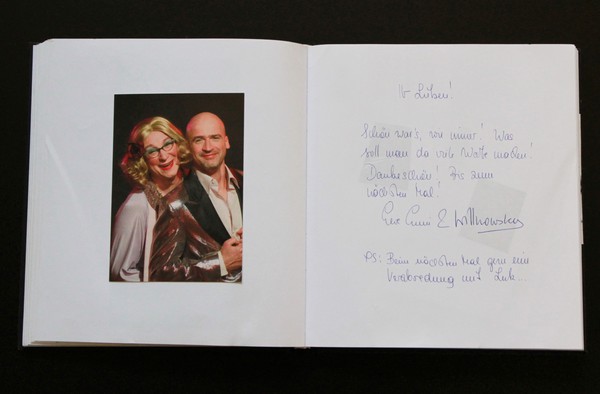 Ihr Lieben!
Schön war's, wie immer! Was
soll man da viele Worte machen!
Dankeschön! Bis zum
nächsten Mal!
E. Willnowsky
PS: Beim nächsten Mal gern eine
Verabredung mit